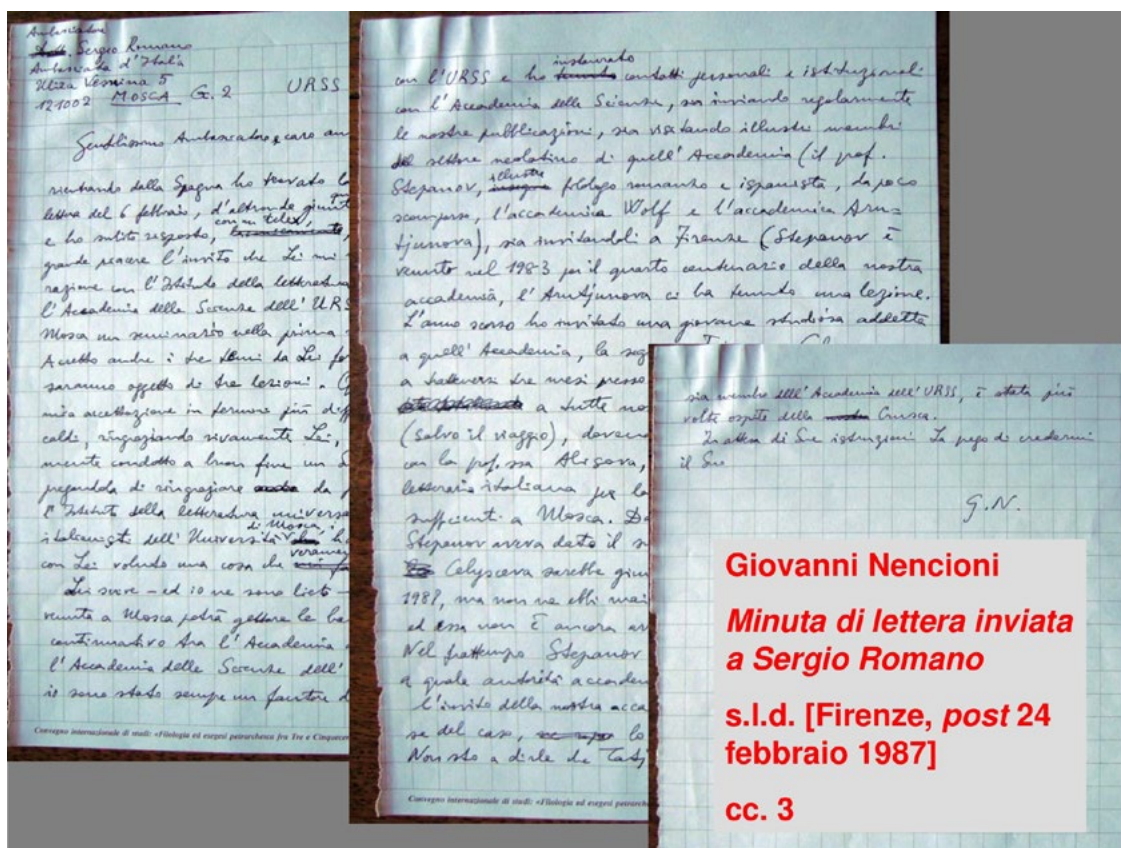 Ambasciatore
Dott. Sergio Romano
Ambasciata d'Italia
Ulica Vesnina 5
121002 MOSCA G. 2 URSS
Gentilissimo Ambasciatore e caro
rientrando dalla Spagna ho trovato la
lettera del 6 febbraio, d'altronde giunta
con un telex,
e ho subito risposto,
grande piacere l'invito che Lei mi
razione con l'Istituto della letteratura
l'Accademia delle Scienze dell'URSS
Mosca un seminario nella prima
Accetto anche i tre temi da Lei
saranno oggetto di tre lezioni.
mia accettazione in termini più
caldi, ringraziando vivamente Lei,
mente condotto a buon fine un
pregandola di ringraziare da
l'Istituto della letteratura universa
di Mosca i
italianisti dell'Università
con Lei voluto una cosa che
Lei scrive – ed io ne sono lieto –
venuta a Mosca potrà gettare le ba
continuativo tra l'Accademia
l'Accademia delle Scienze dell'
io sono stato sempre un fautore
Convegno internazionale di studi: «Filologia ed esegesi petrarchesca fra Tre e Cinquecen
instaurato
con l'URSS e ho tenuto contatti personali e istituzionali
con l'Accademia delle Scienze, sia inviando regolarmente
le nostre pubblicazioni, sia visitando illustri membri
del settore neolatino di quell'Accademia (il prof.
illustre
Stepanov, insigne filologo romanzo e ispanista, da poco
scomparso, l'accademica Wolf e l'accademica Aru=
tjunova), sia invitandoli a Firenze (Stepanov è
venuto nel 1983 per il quarto centenario della nostra
accademia, l'Arutjunova ci ha tenuto una lezione.
L'anno scorso ho invitato una giovane studiosa addetta
a quell'Accademia, la
a trattenersi tre mesi presso
a tutte no
(salvo il viaggio),
con la prof.ssa Alisova,
letteraria italiana per la
sufficienti a Mosca.
Stepanov aveva dato il
Celysceva sarebbe
ma non ne ebbi mai
ed essa non è ancora
Nel frattempo Stepanov
quale autorità accadem
l'invito della nostra acca
se del caso, lo
Non sto a dirle che
Convegno internazionale di studi: «Filologia ed esegesi petrarches
sia membro dell'Accademia dell'URSS, è stata più
volte ospite della nostra Crusca.
In attesa di Sue istruzioni La prego di credermi
il Suo
G.N.
Giovanni Nencioni
Minuta di lettera inviata
a Sergio Romano
s.l.d. [Firenze, post 24
febbraio 1987]
cc. 3